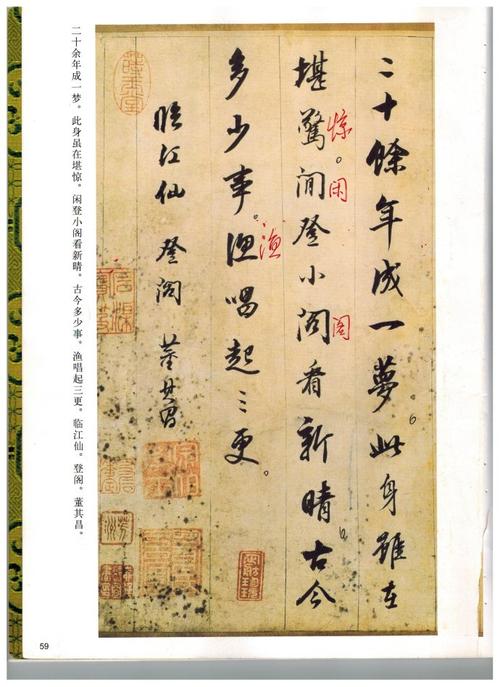 二十餘年成一夢。此身雖在
堪驚。閒登小閣看新晴。古今
多少事。漁唱起三更。
臨江仙 登閣 董其昌
惊
闲
阁
渔
二十余年成一梦。此身虽在堪惊。闲登小阁看新晴。古今多少事。渔唱起三更。临江仙。登阁。董其昌。
59